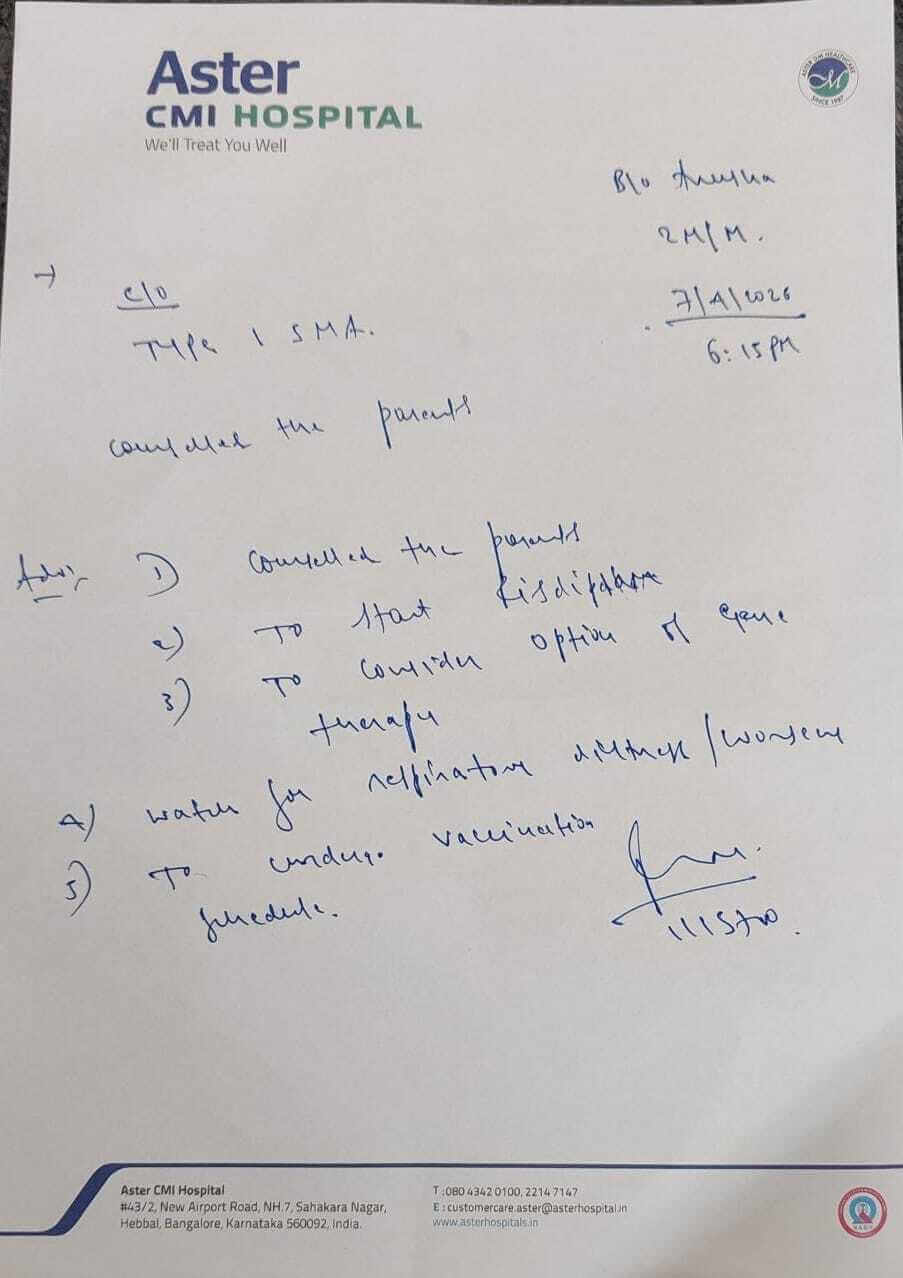 Aster
CMI HOSPITAL
We'll Treat You Well
ASTER DM HEALTHCARE
SINCE 1987
B/o Anusha
2M/M.
7/4/2026
6:15 PM
c/o
Type 1 SMA.
counselled the parents
Adv:
1) Counselled the parents
2) To start Risdiplam
3) To consider option of gene
therapy
4) watch for respiratory distress/worsening
5) To undergo vaccination
schedule.
Aster CMI Hospital
#43/2, New Airport Road, NH.7, Sahakara Nagar,
Hebbal, Bangalore, Karnataka 560092, India.
T :080 4342 0100, 2214 7147
E : customercare.aster@asterhospital.in
www.asterhospitals.in